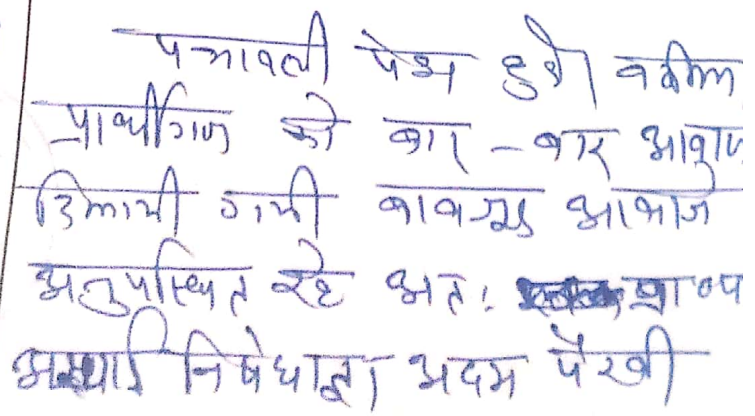 पत्रावली पेश हुई। वकील
प्रार्थीगण को बार-बार आवाज
दिलायी गयी बावजूद आवाज
अनुपस्थित रहे अतः प्रा०प
अस्थाई निषेधाज्ञा अदम पैरवी